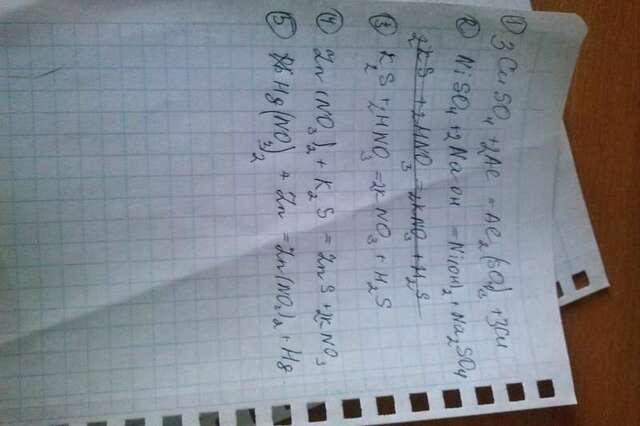 ① 3CuSO4 + 2Al = Al2(SO4)3 + 3Cu
② NiSO4 + 2NaOH = Ni(OH)2 + Na2SO4
2K S + 2HNO3 = 2KNO3 + H2S
③ K2S + 2HNO3 = 2KNO3 + H2S
④ Zn(NO3)2 + K2S = ZnS + 2KNO3
⑤ Hg(NO3)2 + Zn = Zn(NO3)2 + Hg.